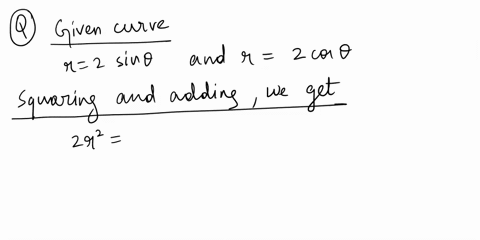 Q Given curve
r = 2 sinθ and r = 2 cosθ
Squaring and adding, we get
2r² =